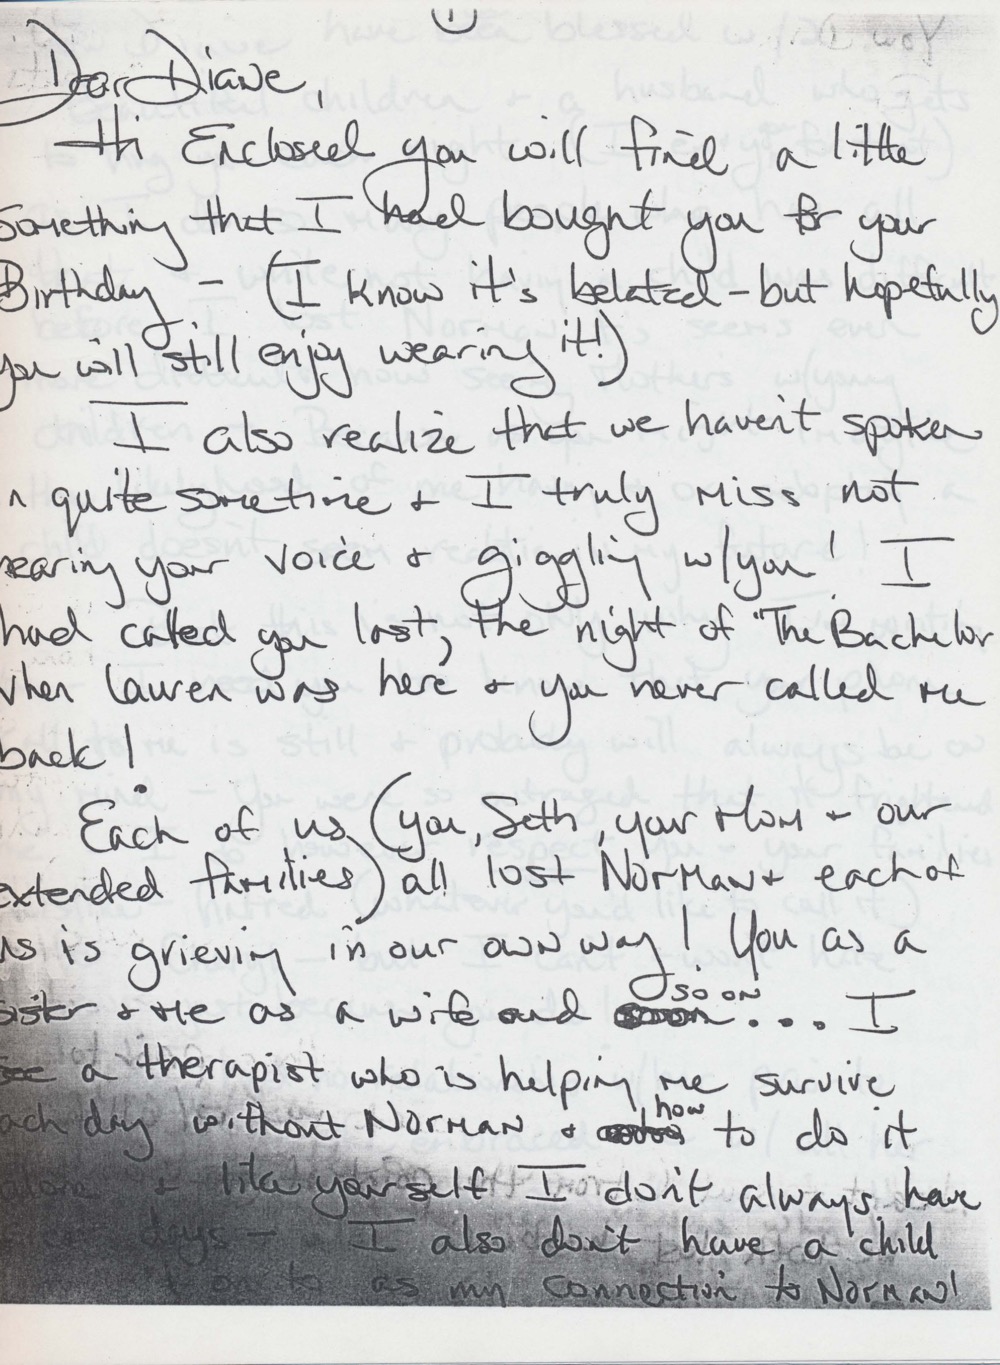 1
Dear Diane,
Hi Enclosed you will find a little
something that I had bought you for your
Birthday - (I know it's belated - but hopefully
you will still enjoy wearing it!)
I also realize that we haven't spoken
in quite sometime & I truly miss not
hearing your voice & giggling w/you! I
had called you last, the night of "The Bachelor
when Lauren was here & you never called me
back!
Each of us (you, Seth, your Mom & our
extended families) all lost Norman & each of
us is grieving in our own way! You as a
sister & me as a wife and soon so on... I
see a therapist who is helping me survive
each day without Norman & how to do it
alone & like yourself I don't always have
days - I also don't have a child
on to as my connection to Norman!